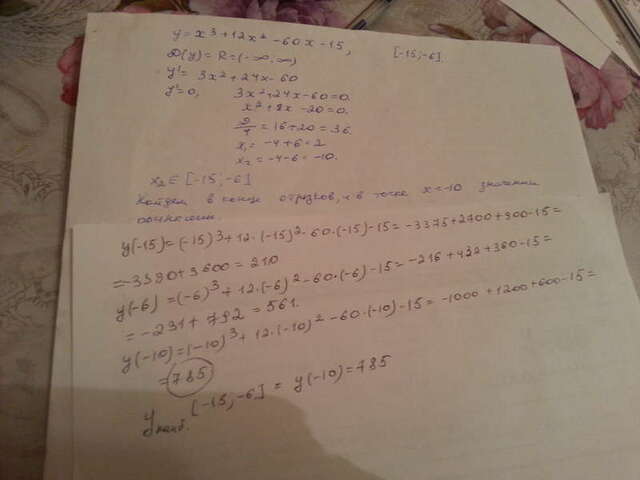 y = x³ + 12x² - 60x - 15, [-15; -6].
D(y) = R = (-∞; ∞)
y' = 3x² + 24x - 60
y' = 0, 3x² + 24x - 60 = 0.
x² + 8x - 20 = 0.
D/4 = 16 + 20 = 36.
x₁ = -4 + 6 = 2
x₂ = -4 - 6 = -10.
x₂ ∈ [-15; -6]
Найдем в конце отрезков, и в точке x = -10 значения
y(-15) = (-15)³ + 12 · (-15)² - 60 · (-15) - 15 = -3375 + 2700 + 900 - 15 =
= -3390 + 3600 = 210
y(-6) = (-6)³ + 12 · (-6)² - 60 · (-6) - 15 = -216 + 432 + 360 - 15 =
= -231 + 792 = 561.
y(-10) = (-10)³ + 12 · (-10)² - 60 · (-10) - 15 = -1000 + 1200 + 600 - 15 =
= 785
y наиб. [-15; -6] = y(-10) = 785